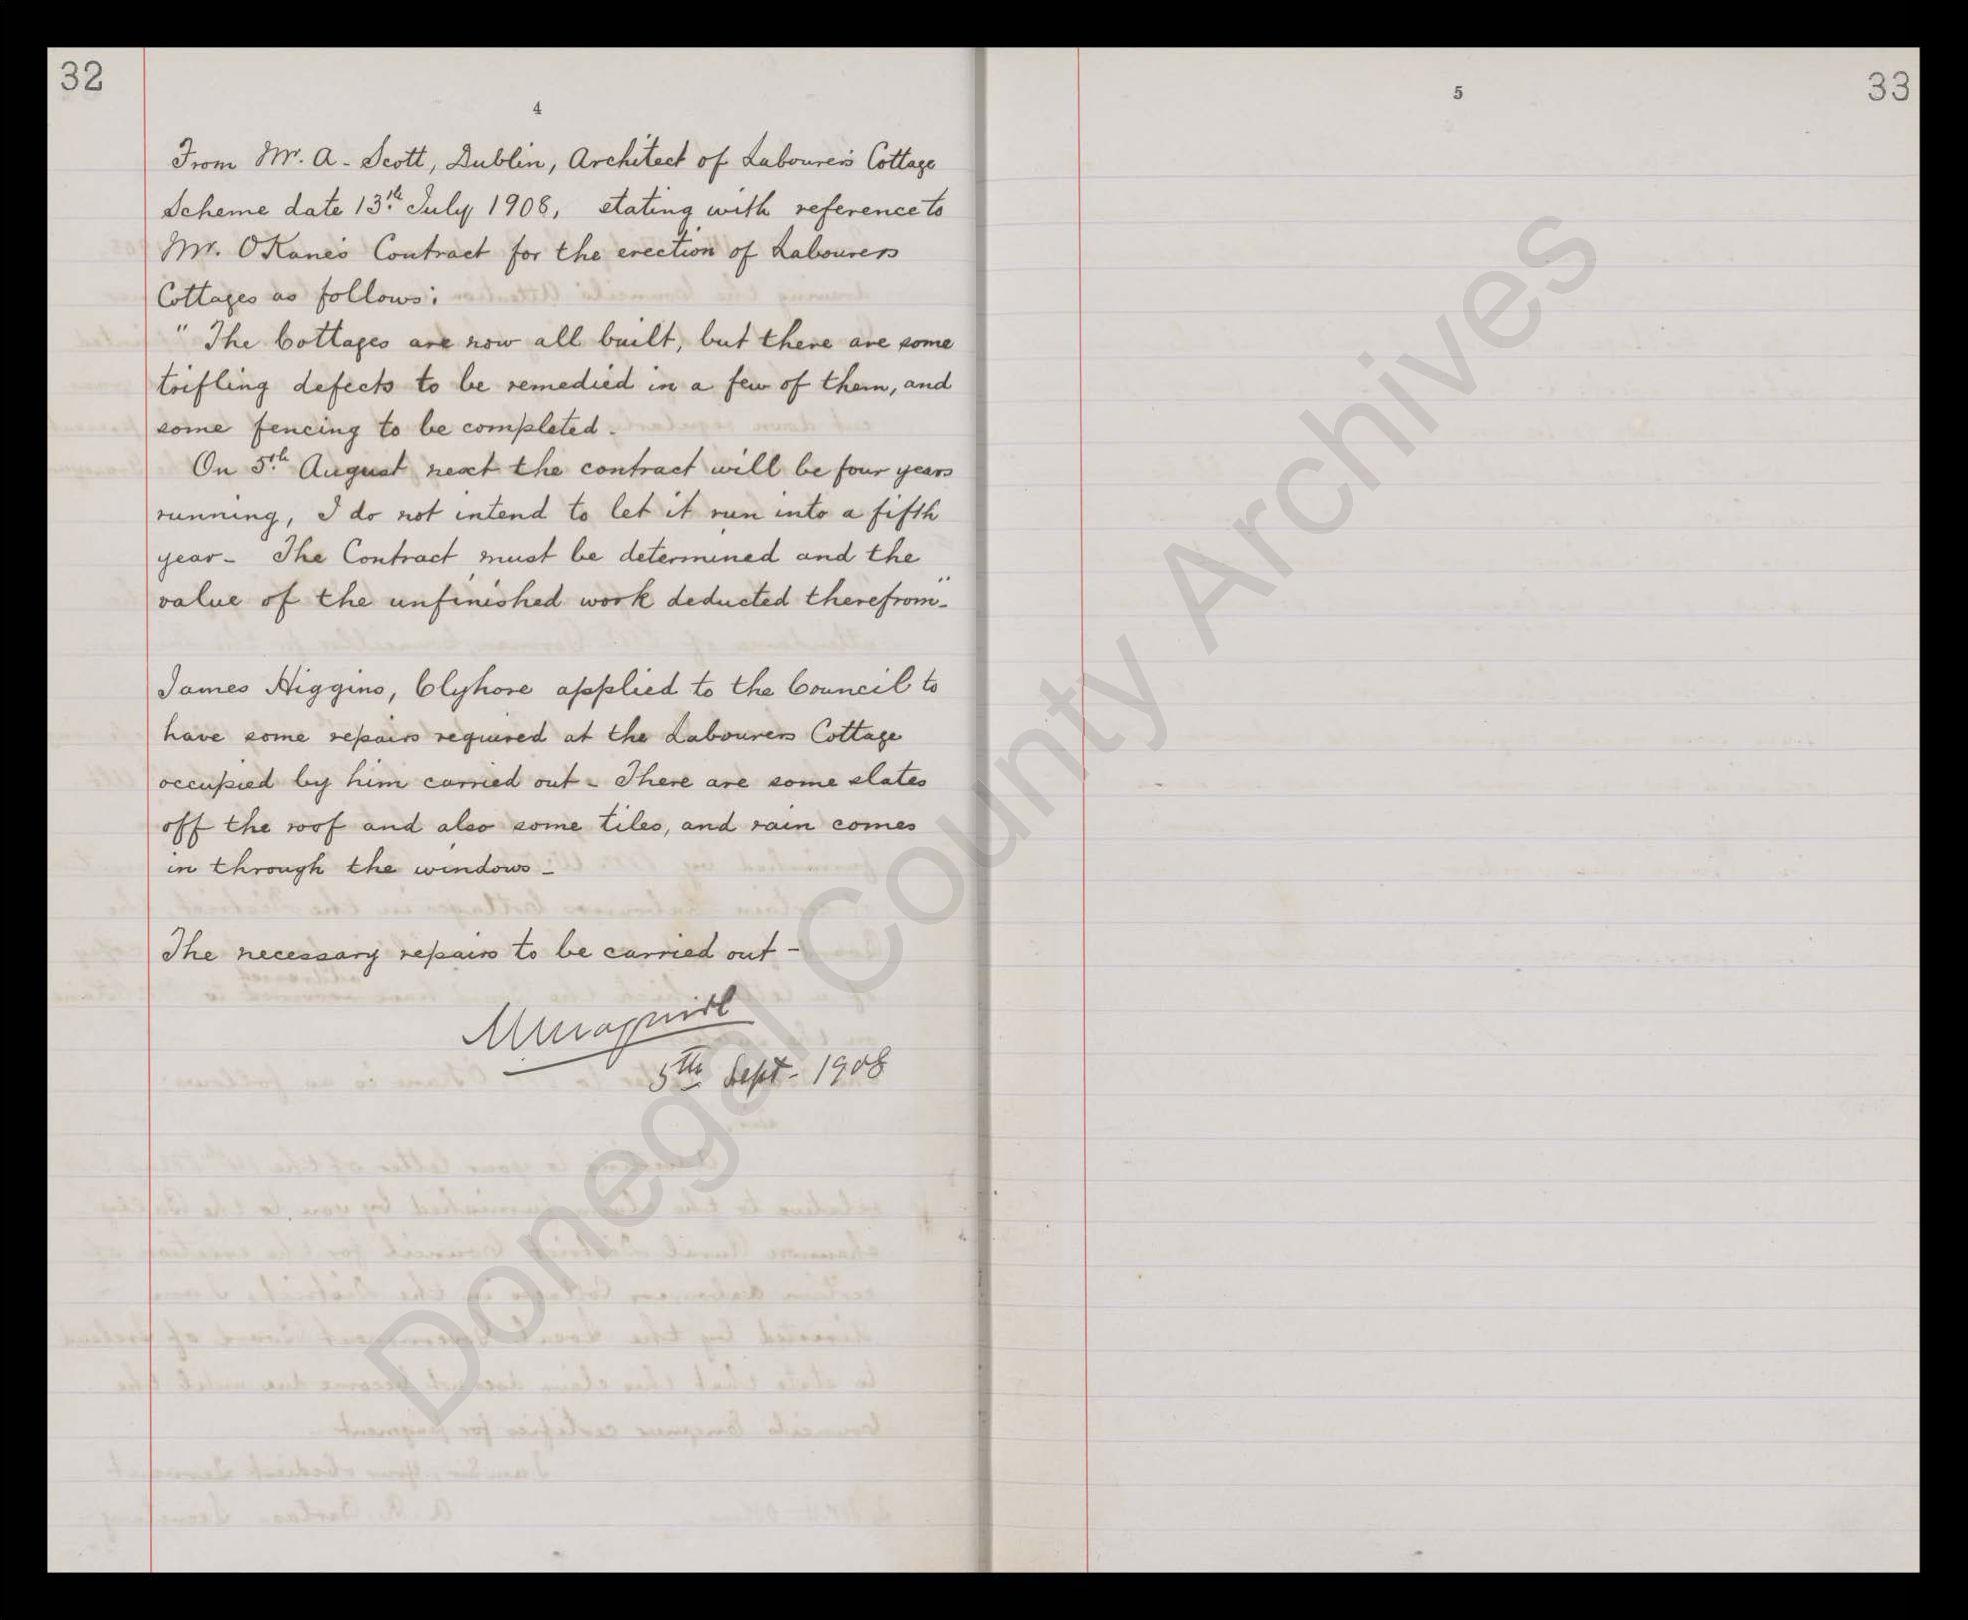 32
4
From Mr. A. Scott, Dublin, Architect of Labourers Cottage
Scheme date 13th July 1908, stating with reference to
Mr. O'Kane's Contract for the erection of Labourers
Cottages as follows:
" The Cottages are now all built, but there are some
trifling defects to be remedied in a few of them, and
some fencing to be completed.
On 5th August next the contract will be four years
running, I do not intend to let it run into a fifth
year - The Contract must be determined and the
value of the unfinished work deducted therefrom"-
James Higgins, Clyhore applied to the Council to
have some repairs required at the Labourers Cottage
occupied by him carried out - There are some slates
off the roof and also some tiles, and rain comes
in through the windows -
The necessary repairs to be carried out -
5th Sept - 1908
5
33
Donegal County Archives